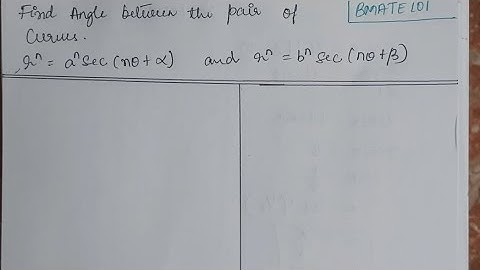 Find Angle between the pair of
BMATE101
Curves.
rⁿ = aⁿ sec (nθ + α) and rⁿ = bⁿ sec (nθ + β)